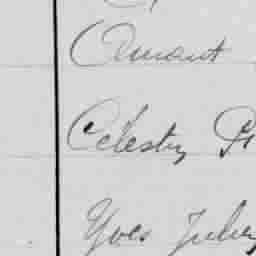 Amant
Celestin
Yves Jules